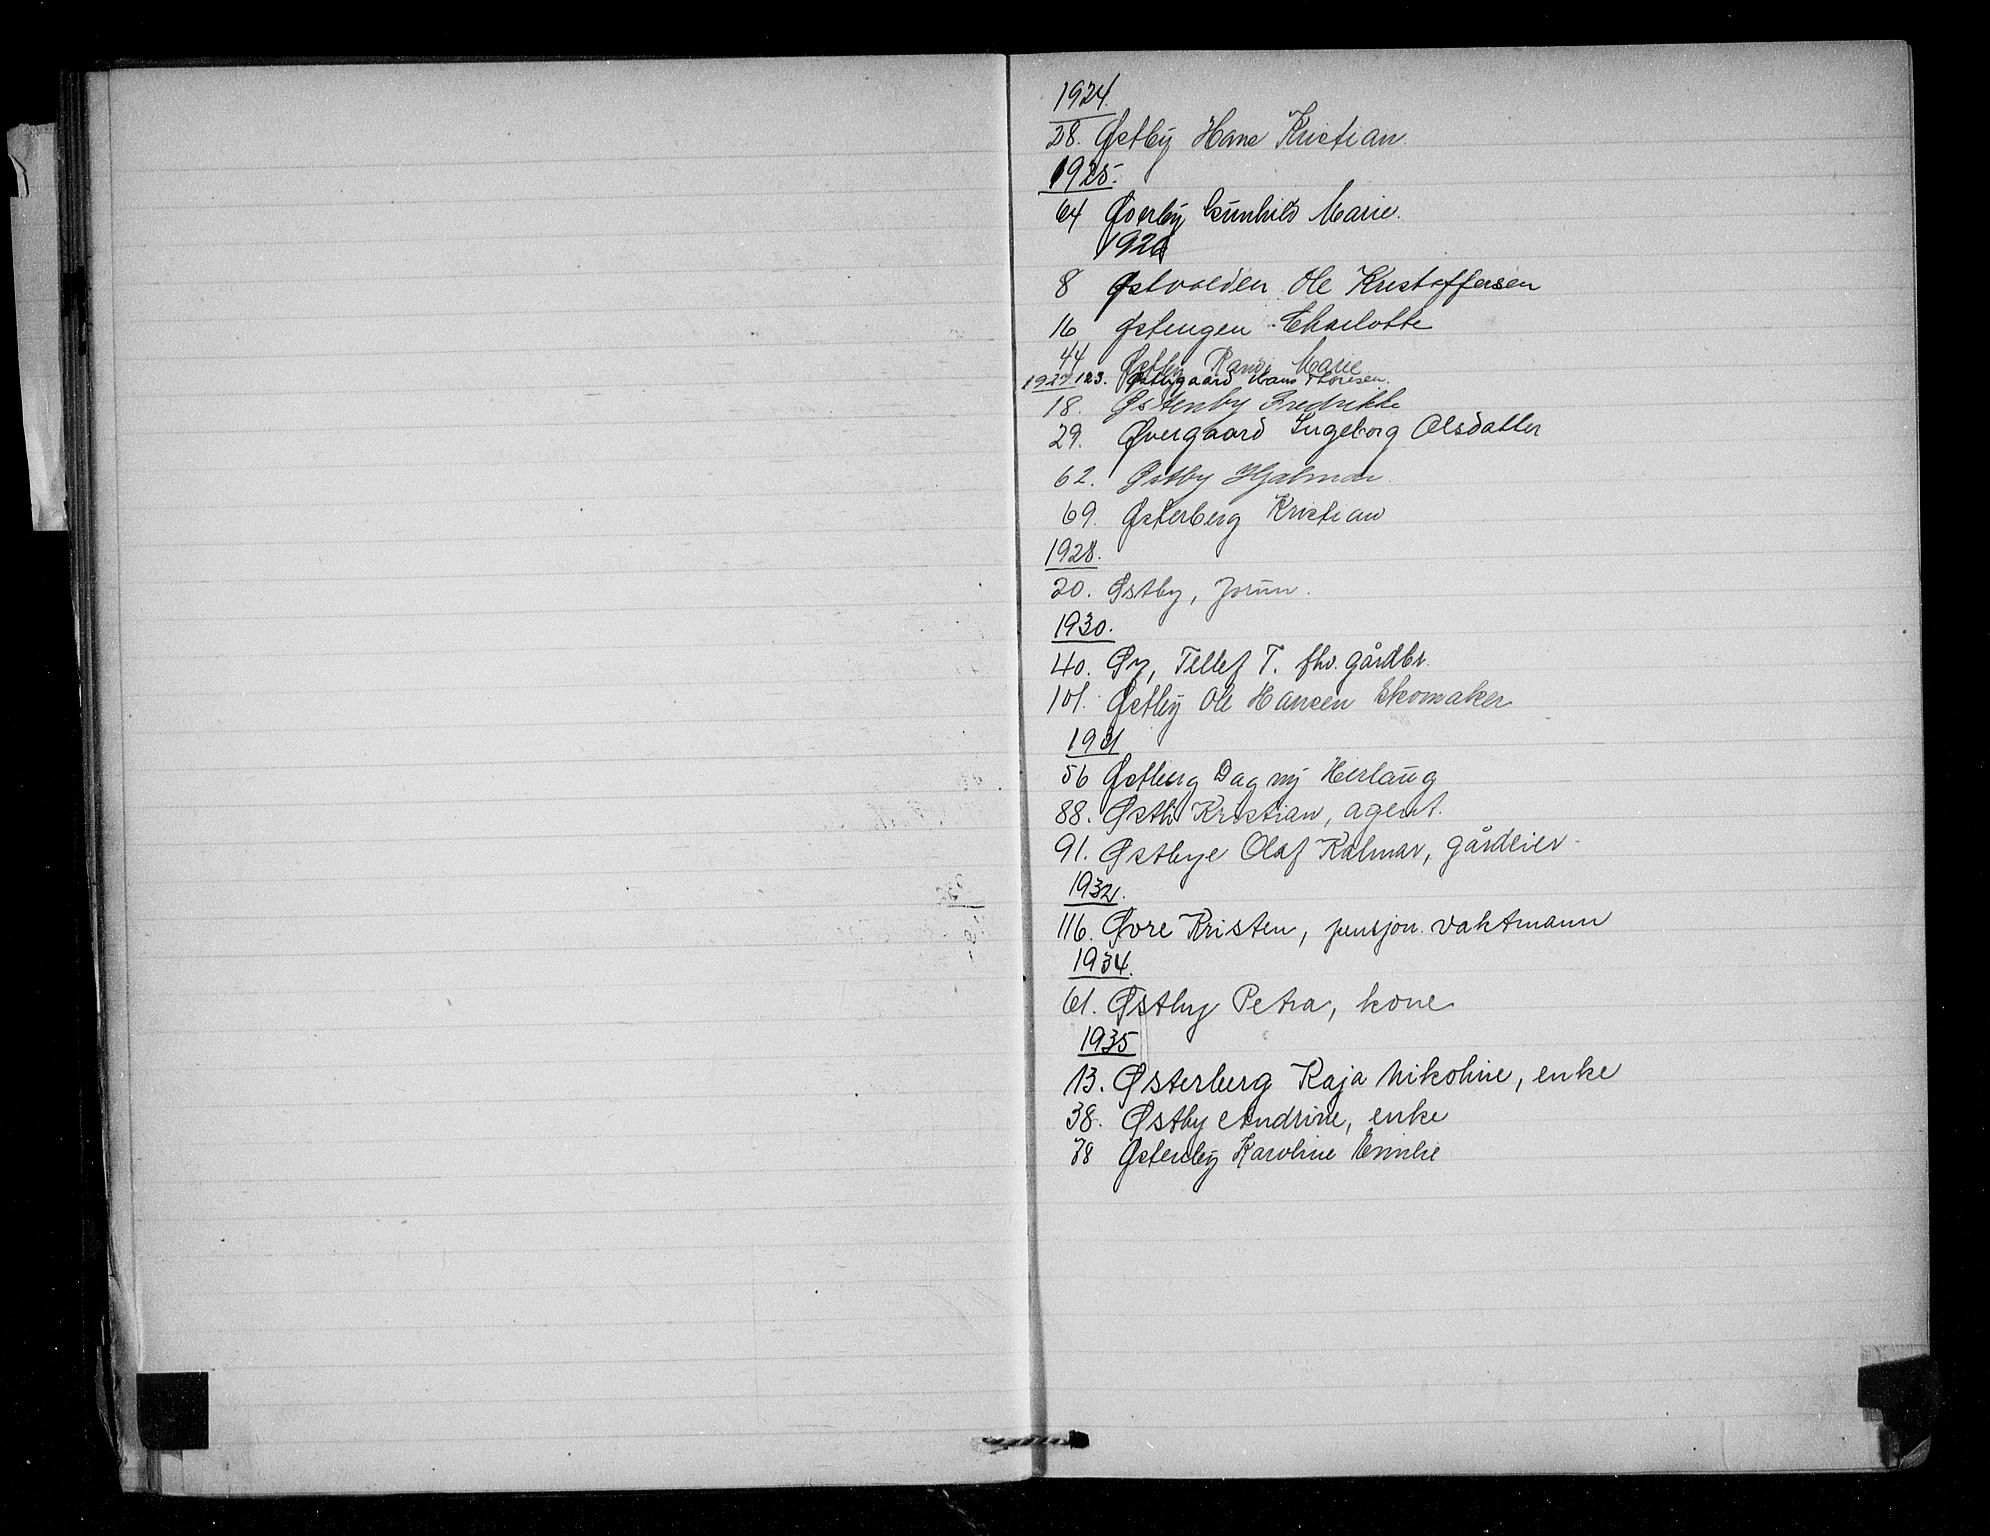 1924.
28. Østby Hans Kristian.
1925.
64 Øverby Gunhild Marie.
1926
8 Østvolden Ole Kristoffersen
16 Østengen Charlotte
44 Østby Randi Marie
1927 123. Østbygaard Hans Thoresen.
18. Østenby Fredrikke
29. Øvergaard Ingeborg Olsdatter
62. Østby Hjalmar.
69. Østerberg Kristian
1928.
20. Østby, Jorun.
1930.
40. Øy, Tellef T. fhv. gårdbr.
101. Østby Ole Hansen Skomaker
1931
56 Østberg Dagny Herlaug
88. Østli Kristian, agent.
91. Østbye Olaf Kalmar, gårdeier
1932.
116. Øvre Kristen, pensjon. vaktmann
1934.
61. Østby Petra, kone
1935
13. Østerberg Kaja Nikoline, enke
38. Østby Andrine, enke
38 Østenby Karoline Emilie